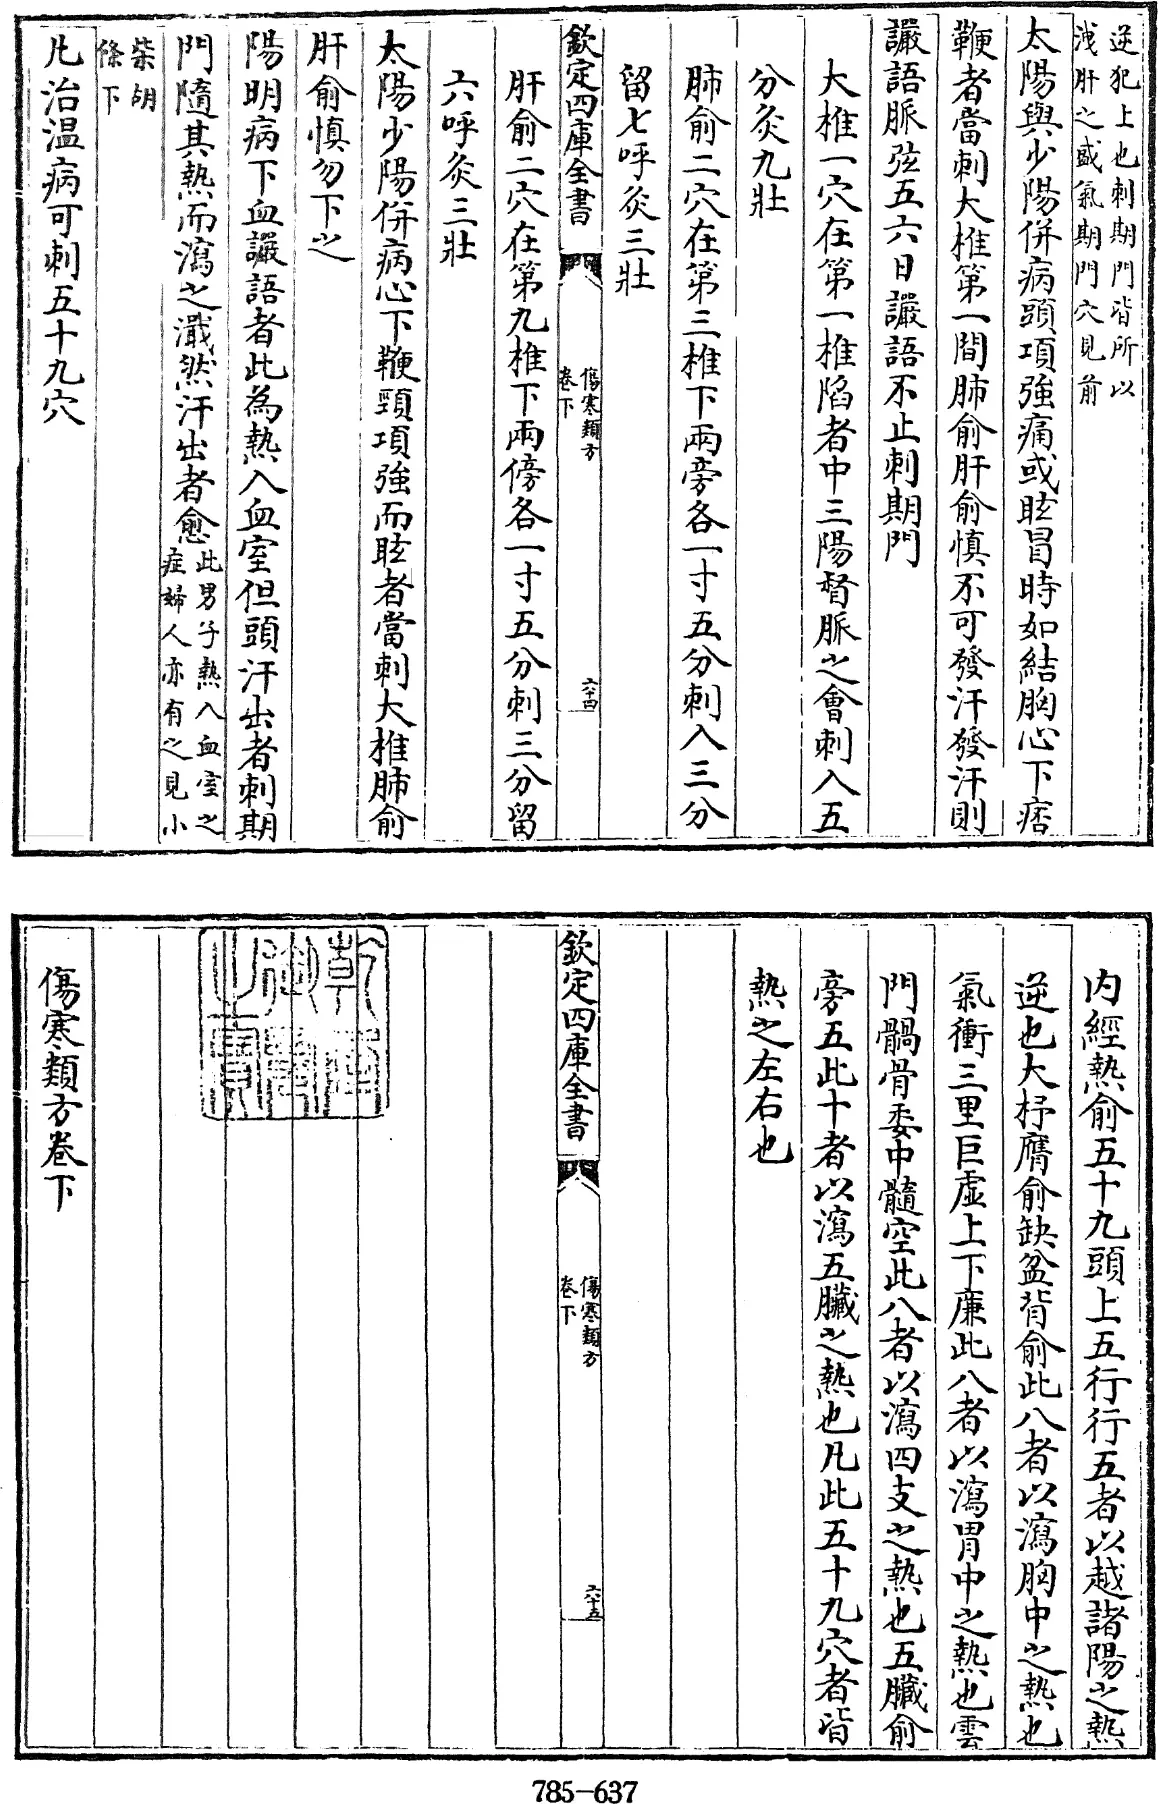 逆犯上也刺期門皆所以
洩肝之盛氣期門穴見前
太陽與少陽併病頭項強痛或眩冒時如結胸心下痞
鞕者當刺大椎第一間肺俞肝俞慎不可發汗發汗則
讝語脈弦五六日讝語不止刺期門
大椎一穴在第一椎陷者中三陽督脈之會刺入五
分灸九壯
肺俞二穴在第三椎下兩旁各一寸五分刺入三分
留七呼灸三壯
欽定四庫全書
傷寒類方
卷下
六十四
肝俞二穴在第九椎下兩傍各一寸五分刺三分留
六呼灸三壯
太陽少陽併病心下鞕頸項強而眩者當刺大椎肺俞
肝俞慎勿下之
陽明病下血讝語者此為熱入血室但頭汗出者刺期
門隨其熱而瀉之濈然汗出者愈
此男子熱入血室之
症婦人亦有之見小
柴胡
條下
凡治温病可刺五十九穴
内經熱俞五十九頭上五行行五者以越諸陽之熱
逆也大杼膺俞缺盆背俞此八者以瀉胸中之熱也
氣衝三里巨虛上下廉此八者以瀉胃中之熱也雲
門髃骨委中髓空此八者以瀉四支之熱也五臟俞
旁五此十者以瀉五臟之熱也凡此五十九穴者皆
熱之左右也
欽定四庫全書
傷寒類方
卷下
六十五
乾隆
御覽
之寶
傷寒類方卷下
785-637